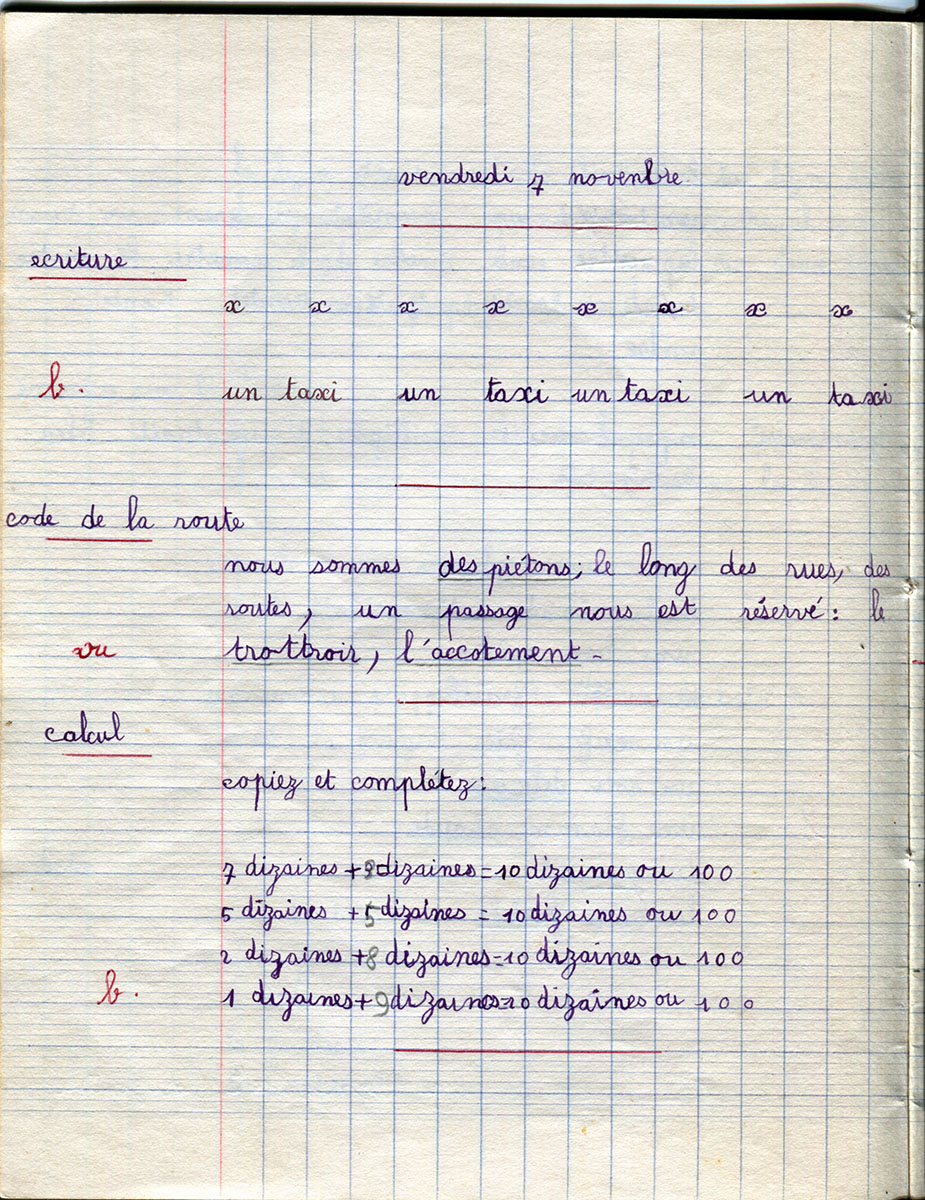 vendredi 7 novenbre
ecriture
x x x x x x x x
b. un taxi un taxi un taxi un taxi
code de la route
nous sommes des piétons; le long des rues, des
routes, un passage nous est réservé: le
vu trottroir, l'accotement -
calcul
copiez et complétez:
7 dizaines + 3 dizaines = 10 dizaines ou 100
5 dizaines + 5 dizaines = 10 dizaines ou 100
2 dizaines + 8 dizaines = 10 dizaines ou 100
b. 1 dizaines + 9 dizaines = 10 dizaines ou 100